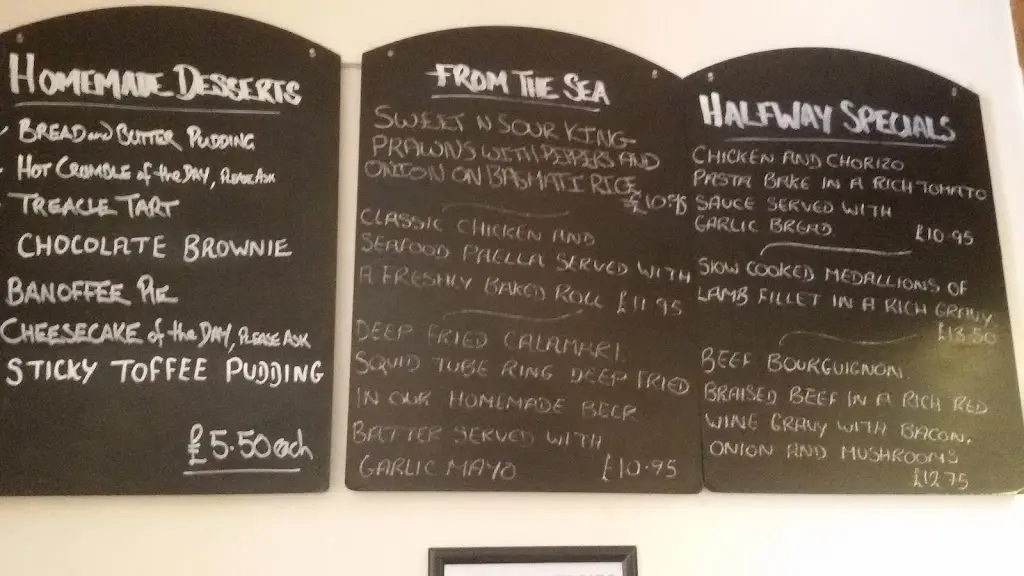 HOMEMADE DESSERTS
BREAD and BUTTER PUDDING
HOT CRUMBLE of the DAY, PLEASE ASK
TREACLE TART
CHOCOLATE BROWNIE
BANOFFEE PIE
CHEESECAKE of the DAY, PLEASE ASK
STICKY TOFFEE PUDDING
£5.50 each
FROM THE SEA
SWEET N SOUR KING
PRAWNS WITH PEPPERS AND
ONION ON BASMATI RICE
£10.95
CLASSIC CHICKEN AND
SEAFOOD PAELLA SERVED WITH
A FRESHLY BAKED ROLL £11.95
DEEP FRIED CALAMARI.
SQUID TUBE RING DEEP FRIED
IN OUR HOMEMADE BEER
BATTER SERVED WITH
GARLIC MAYO £10.95
HALFWAY SPECIALS
CHICKEN AND CHORIZO
PASTA BAKE IN A RICH TOMATO
SAUCE SERVED WITH
GARLIC BREAD £10.95
SLOW COOKED MEDALLIONS OF
LAMB FILLET IN A RICH GRAVY
£13.50
BEEF BOURGUIGNON.
BRAISED BEEF IN A RICH RED
WINE GRAVY WITH BACON,
ONION AND MUSHROOMS
£12.75